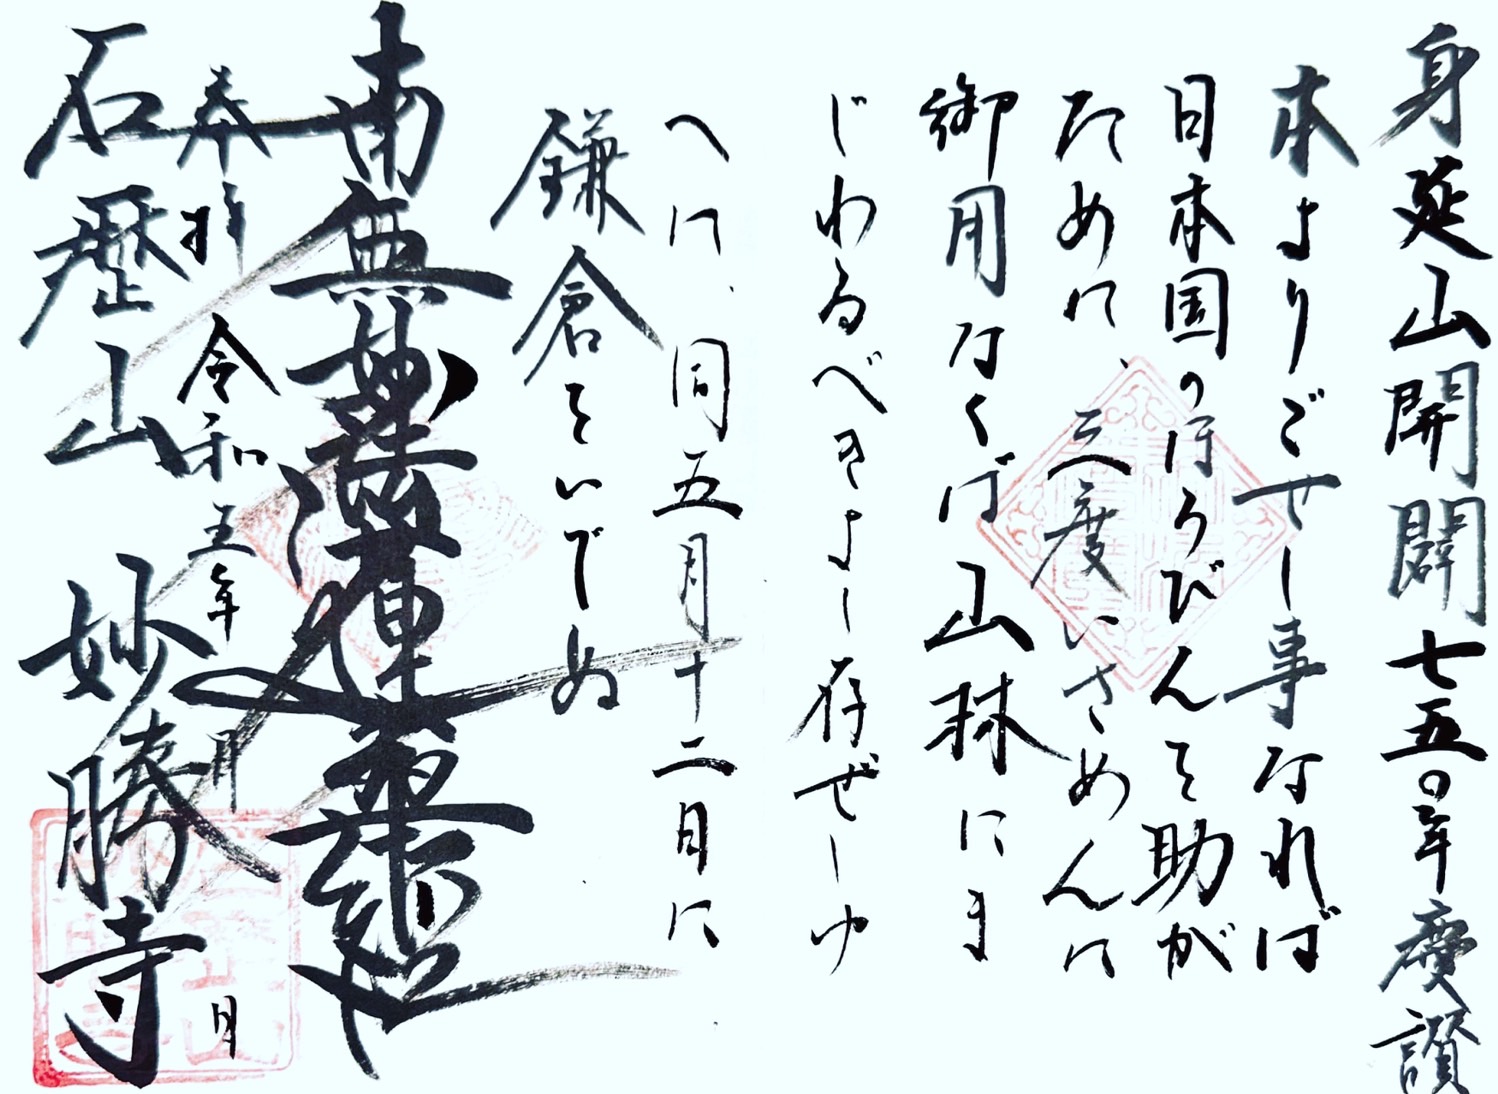 身延山開闢七五〇年慶讃
本よりごせし事なれば
日本国のほろびんを助が
ために、三度いさめんに
御用なくば山林にま
じわるべきよし存ぜしゆ
へに、同五月十二日に
鎌倉をいでぬ
南無妙法蓮華経
奉拝 令和五年 月 日
石歴山 妙勝寺